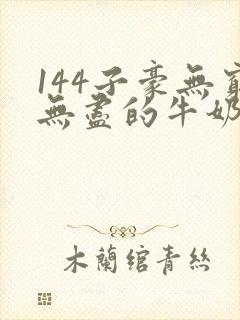 144子豪無窮
無盡的牛奶
木蘭綰青絲